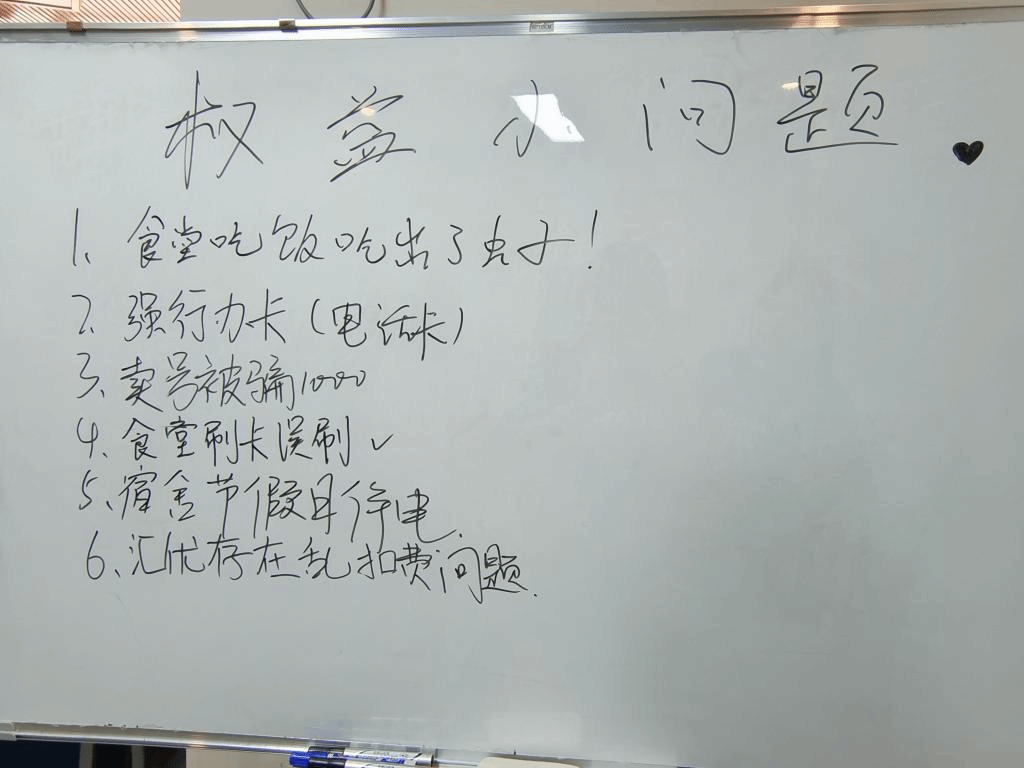 权益小问题
1、食堂吃饭吃出了虫子！
2、强行办卡（电话卡）
3、卖号被骗1000
4、食堂刷卡误刷✓
5、宿舍节假日停电.
6、汇优存在乱扣费问题.